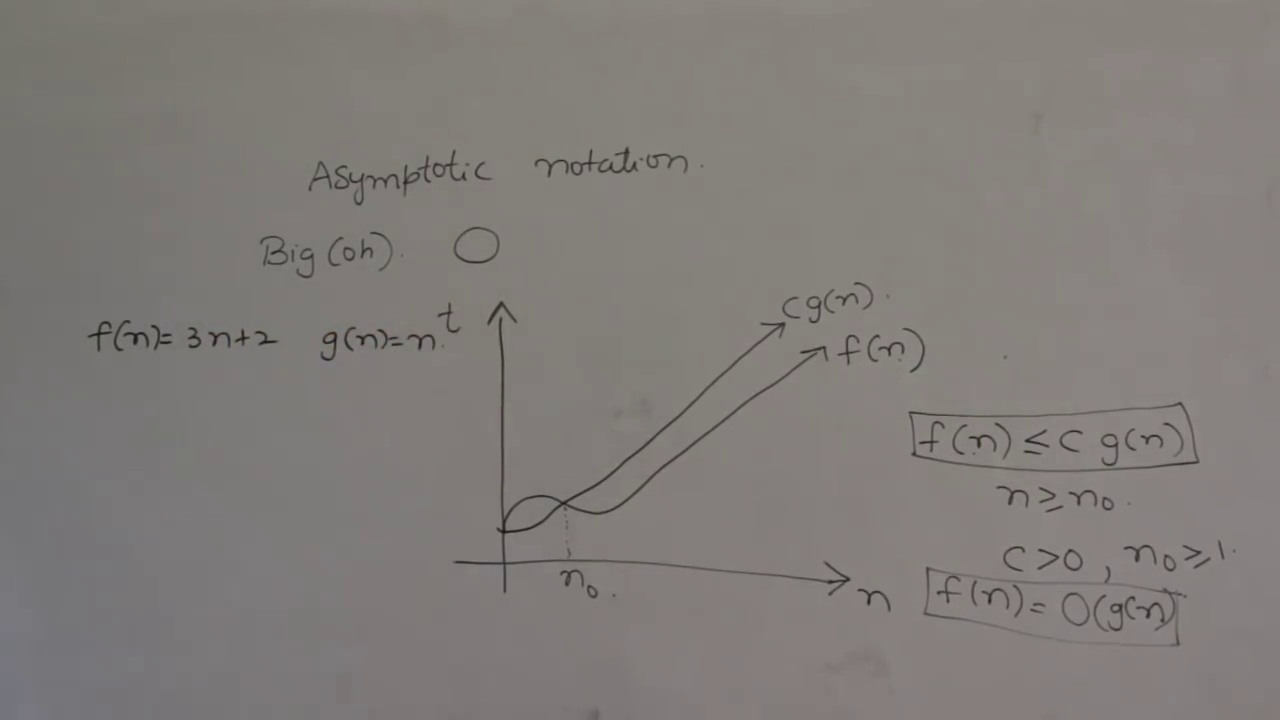 Asymptotic notation.
Big (oh). O
f(n)= 3n+2 g(n)=n.
t
c g(n).
f(n)
f(n) ≤ c g(n)
n ≥ n₀.
c > 0 , n₀ ≥ 1.
n₀.
n
f(n) = O(g(n)